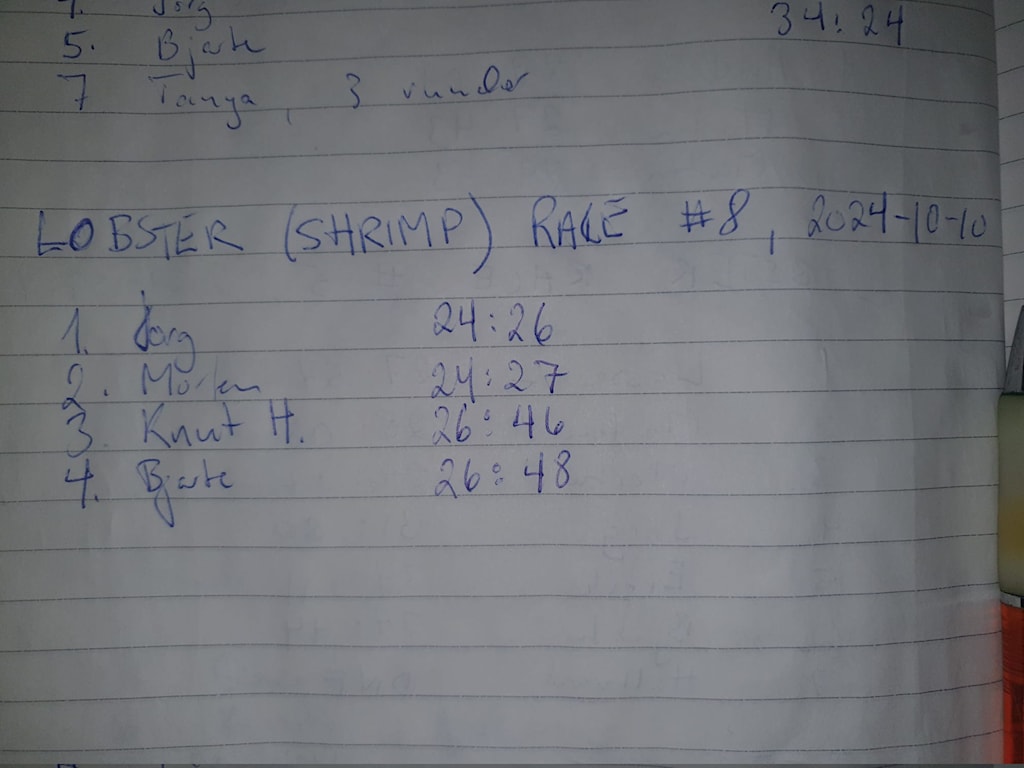 Jorg
34:24
5. Bjarte
7 Tanya, 3 runder
LOBSTER (SHRIMP) RACE #8, 2024-10-10
1. Jorg 24:26
2. Morten 24:27
3. Knut H. 26:46
4. Bjarte 26:48